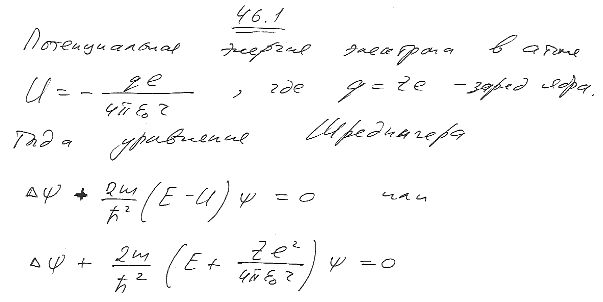 46.1
Потенциальная энергия электрона в атоме
U = - qe / 4πε₀r , где q = Ze - заряд ядра.
Тогда уравнение Шредингера
Δψ + 2m/ħ² (E - U) ψ = 0 или
Δψ + 2m/ħ² (E + Ze²/4πε₀r) ψ = 0